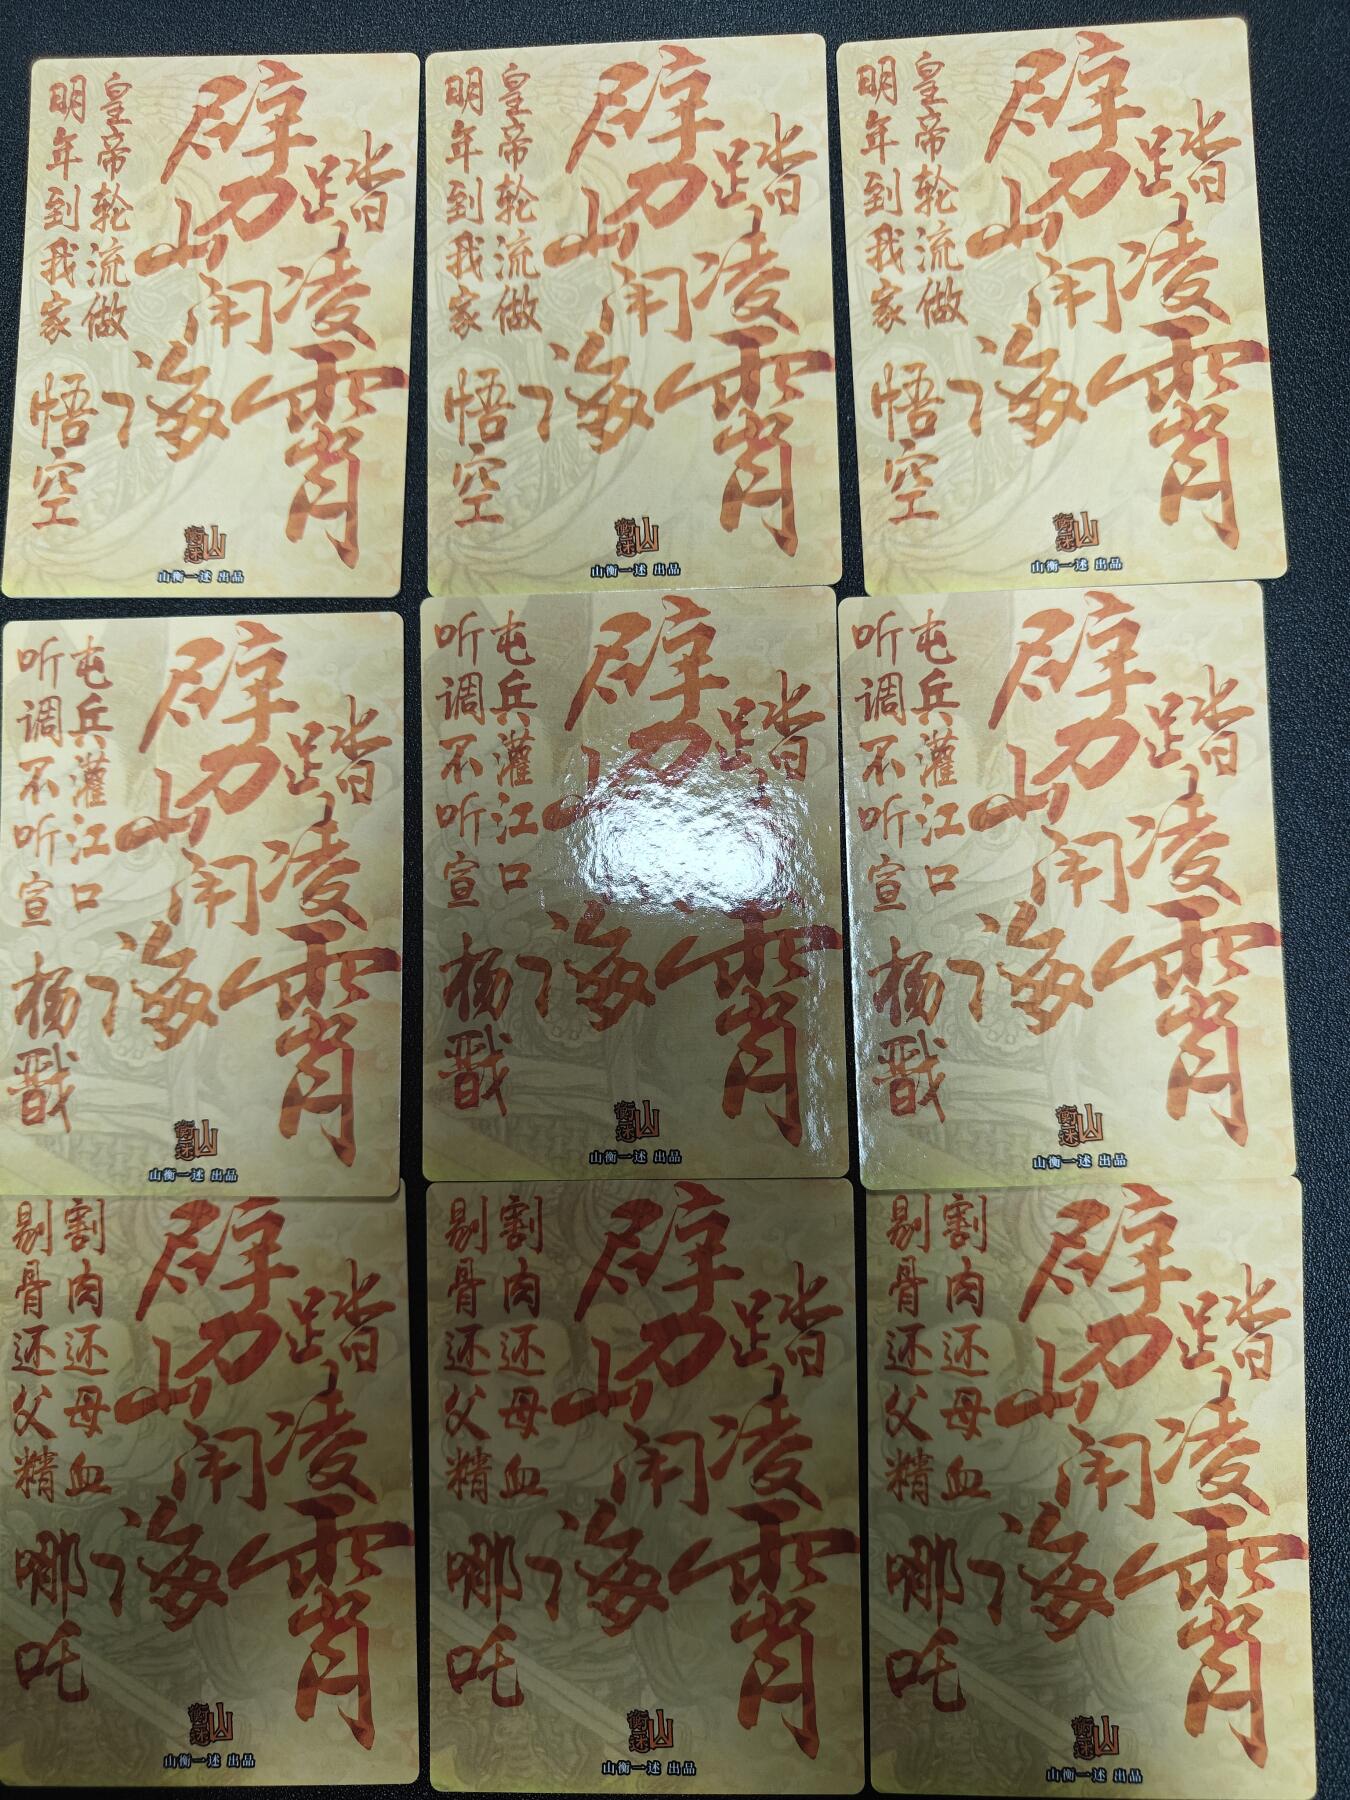 踏凌霄
劈山闹海
皇帝轮流做
明年到我家
悟空
山衡一述
山衡一述 出品
踏凌霄
劈山闹海
皇帝轮流做
明年到我家
悟空
山衡一述
山衡一述 出品
踏凌霄
劈山闹海
皇帝轮流做
明年到我家
悟空
山衡一述
山衡一述 出品
踏凌霄
劈山闹海
屯兵灌江口
听调不听宣
杨戬
山衡一述
山衡一述 出品
踏凌霄
劈山闹海
屯兵灌江口
听调不听宣
杨戬
山衡一述
山衡一述 出品
踏凌霄
劈山闹海
屯兵灌江口
听调不听宣
杨戬
山衡一述
山衡一述 出品
踏凌霄
劈山闹海
割肉还母血
剔骨还父精
哪吒
山衡一述
山衡一述 出品
踏凌霄
劈山闹海
割肉还母血
剔骨还父精
哪吒
山衡一述
山衡一述 出品
踏凌霄
劈山闹海
割肉还母血
剔骨还父精
哪吒
山衡一述
山衡一述 出品